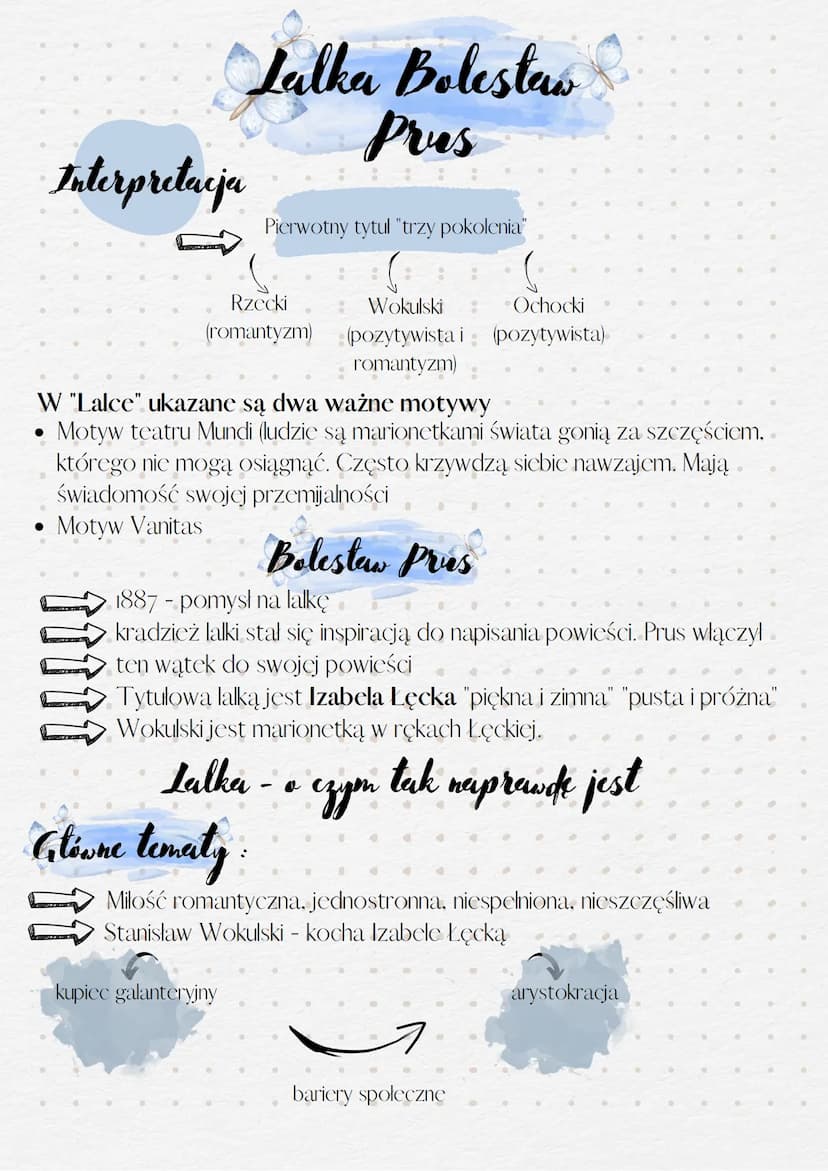 Lalka Bolesław
Prus
Interpretacja
Pierwotny tytuł "trzy pokolenia"
Rzecki
(romantyzm)
Wokulski
(pozytywista i
romantyzm)
Ochocki
(pozytywista)
W "Lalce" ukazane są dwa ważne motywy
• Motyw teatru Mundi (ludzie są marionetkami świata gonią za szczęściem,
którego nie mogą osiągnąć. Często krzywdzą siebie nawzajem. Mają
świadomość swojej przemijalności
• Motyw Vanitas
Bolesław Prus
1887 - pomysł na lalkę
kradzież lalki stał się inspiracją do napisania powieści. Prus włączył
ten wątek do swojej powieści
Tytułową lalką jest Izabela Łęcka "piękna i zimna" "pusta i próżna"
Wokulski jest marionetką w rękach Łęckiej.
Lalka - o czym tak naprawdę jest
Główne tematy :
Miłość romantyczna, jednostronna, niespełniona, nieszczęśliwa
Stanisław Wokulski - kocha Izabele Łęcką
kupiec galanteryjny
arystokracja
bariery społeczne